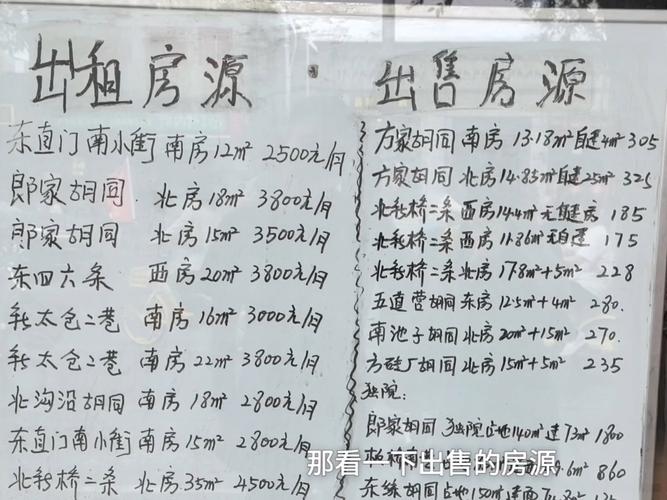 出租房源 ·
东直门南小街 南房12m² 2500元/月
郎家胡同 北房18m² 3800元/月
郎家胡同 北房15m² 3500元/月
东四六条 西房20m² 3800元/月
新太仓二巷 南房16m² 3000元/月
新太仓二巷 南房22m² 3800元/月
北沟沿胡同 南房18m² 2800元/月
东直门南小街 南房15m² 2800元/月
北新桥二条 北房35m² 4500元/月
出售房源
方家胡同 南房 13.18m² 自建4m² 305
方家胡同 北房14.83m² 自建25m² 325
北新桥二条 西房14.4m² 无自建房 185
北新桥二条 西房11.86m² 无自建 175
北新桥二条 北房17.8m²+5m² 228
五道营胡同 东房 12.5m²+4m² 280.
南池子胡同 北房20m²+15m² 270.
方砖厂胡同 北房15m²+5m² 235
独院:
郎家胡同 独院占地140m² 建73m² 1800
.6m² 860
东练胡同占地150m²
那看一下出售的房源